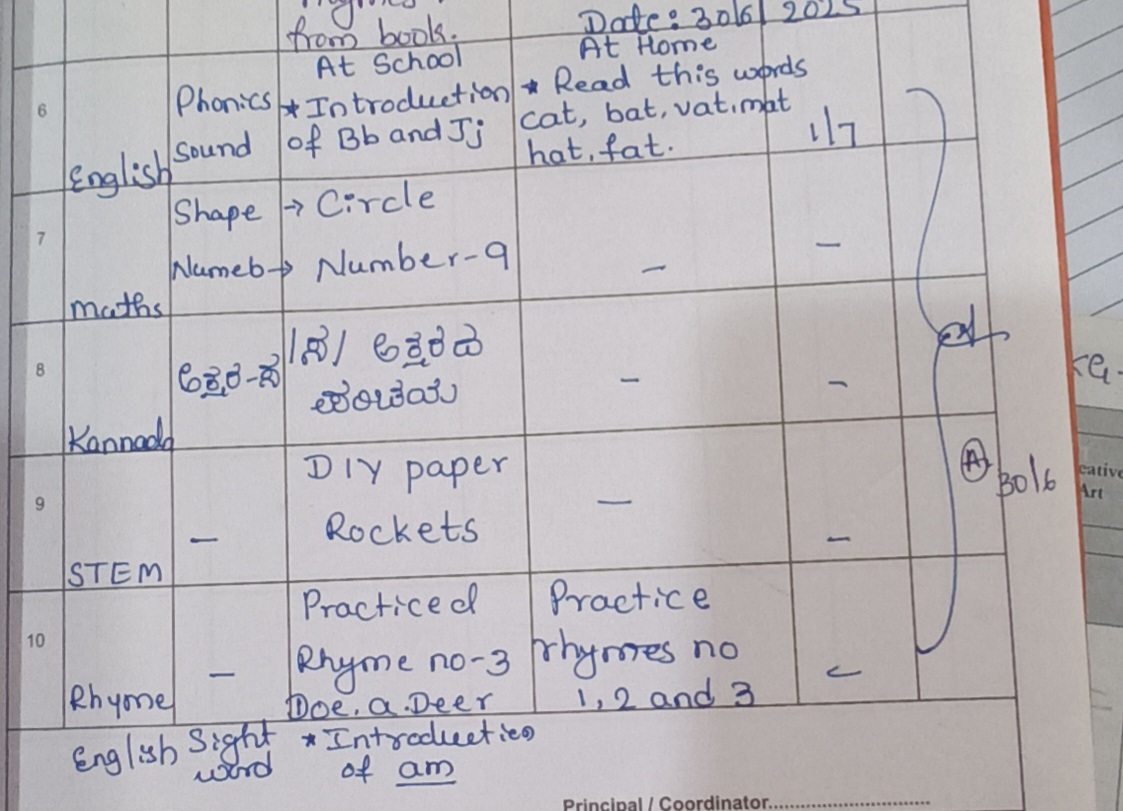 from book.
Date: 30/6/2025
At School
At Home
6
English
Phonics
Sound
* Introduction
of Bb and Jj
* Read this words
cat, bat, vat, mat
hat, fat.
1/7
7
Maths
Shape → Circle
Numeb → Number-9
–
–
8
Kannada
–
–
9
STEM
–
DIY paper
Rockets
–
–
10
Rhyme
–
Practiced
Rhyme no-3
Doe. a. Deer
Practice
rhymes no
1, 2 and 3
A
30/6
eative
Art
English Sight
word
* Introduction
of am
Principal / Coordinator